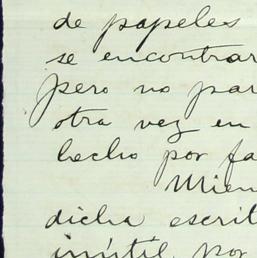 de papeles
se encontrar
pero no par
otra vez en
hecho por fa
Mien
dicha escrit
inútil por